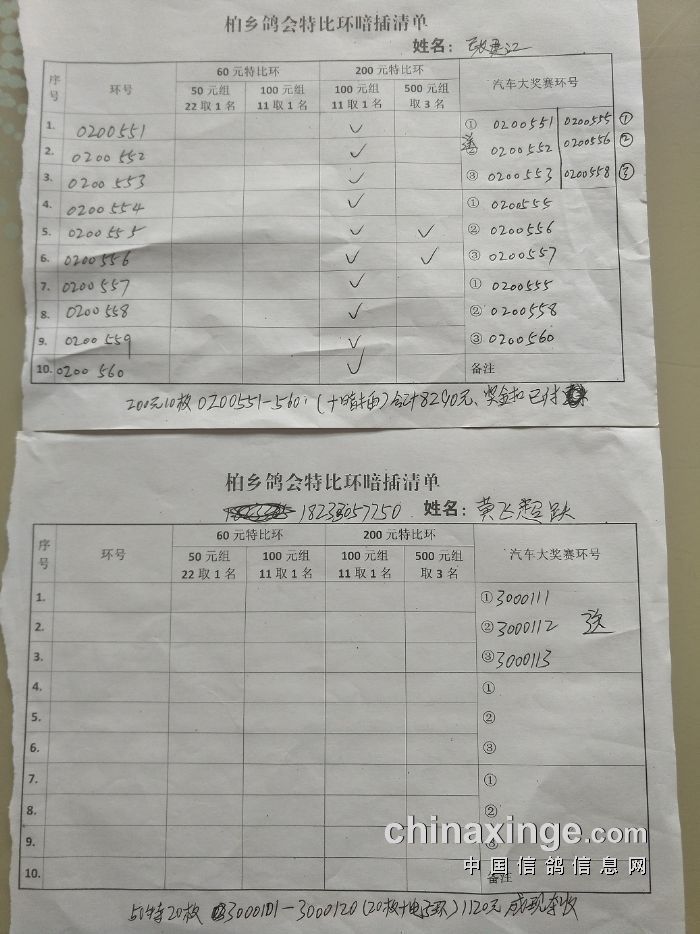 柏乡鸽会特比环暗插清单
姓名：
序号 环号 60元特比环 200元特比环 汽车大奖赛环号
50元组 22取1名 100元组 11取1名 100元组 11取1名 500元组 取3名
1. 0200551 ✓ ① 0200551 0200555 ①
2. 0200552 ✓ ② 0200552 0200556 ②
3. 0200553 ✓ ③ 0200553 0200558 ③
4. 0200554 ✓ ① 0200555
5. 0200555 ✓ ✓ ② 0200556
6. 0200556 ✓ ✓ ③ 0200557
7. 0200557 ✓ ① 0200555
8. 0200558 ✓ ② 0200558
9. 0200559 ✓ ③ 0200560
10. 0200560 ✓ 备注
200元10枚 0200551-560（十暗插）合计8290元、奖金扣已付
柏乡鸽会特比环暗插清单
18233057750 姓名：黄飞超跃
序号 环号 60元特比环 200元特比环 汽车大奖赛环号
50元组 22取1名 100元组 11取1名 100元组 11取1名 500元组 取3名
1. ① 3000111
2. ② 3000112
3. ③ 3000113
4. ①
5. ②
6. ③
7. ①
8. ②
9. ③
10. 备注
chinaxinge.com
中国信鸽信息网
50特20枚 3000101-3000120（20枚+电子环）1120元 现